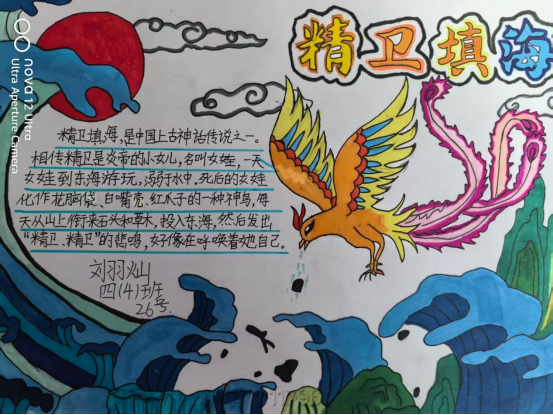 精卫填海
精卫填海,是中国上古神话传说之一。
相传精卫是炎帝的小女儿,名叫女娃,一天
女娃到东海游玩,溺于水中。死后的女娃
化作花脑袋、白嘴壳、红爪子的一种神鸟,每
天从山上衔来石头和草木,投入东海,然后发出
“精卫、精卫”的悲鸣,好像在呼唤着她自己。
刘羽灿
四(4)班
26号
nova 12 Ultra
Ultra Aperture Camera